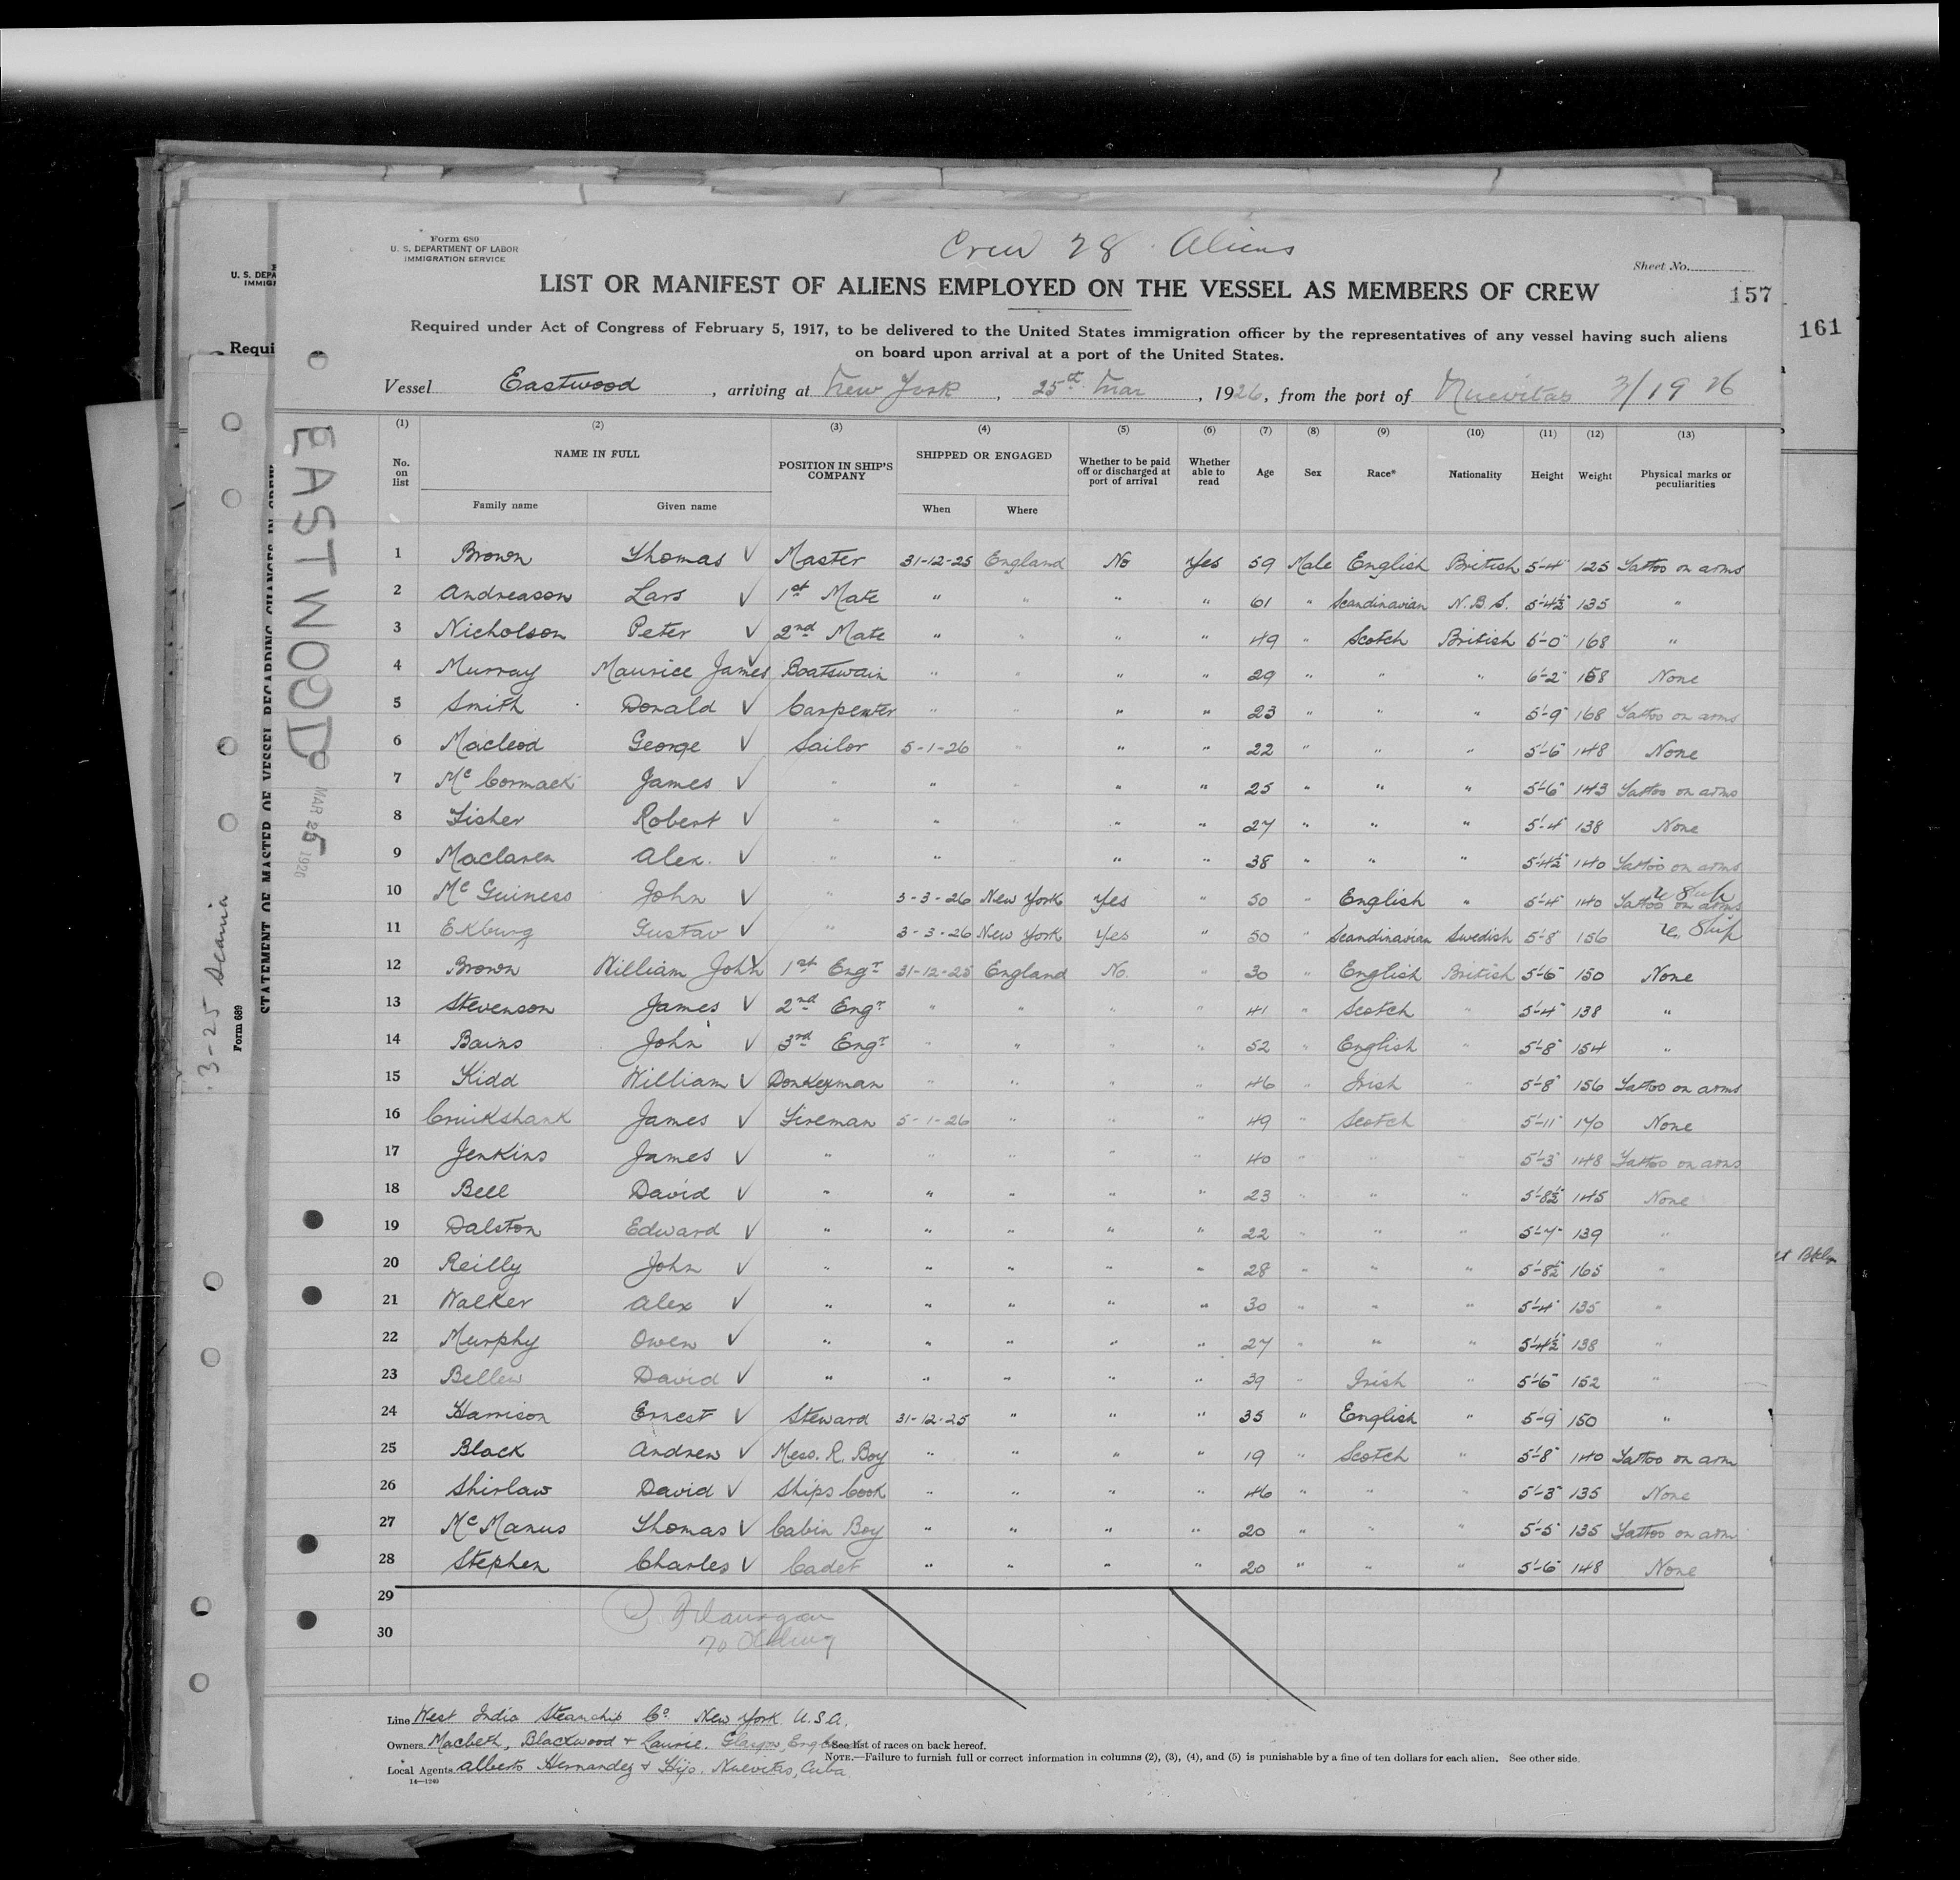 Form 680
U. S. DEPARTMENT OF LABOR
IMMIGRATION SERVICE
Crew 28 Aliens
Sheet No.
LIST OR MANIFEST OF ALIENS EMPLOYED ON THE VESSEL AS MEMBERS OF CREW
157
161
Required under Act of Congress of February 5, 1917, to be delivered to the United States immigration officer by the representatives of any vessel having such aliens
on board upon arrival at a port of the United States.
Vessel Eastwood, arriving at New York, 25th Mar, 1926, from the port of Nuevitas 3/19 26
(1) (2) (3) (4) (5) (6) (7) (8) (9) (10) (11) (12) (13)
No. on list NAME IN FULL POSITION IN SHIP'S COMPANY SHIPPED OR ENGAGED Whether to be paid off or discharged at port of arrival Whether able to read Age Sex Race* Nationality Height Weight Physical marks or peculiarities
Family name Given name When Where
1 Brown Thomas √ Master 31-12-25 England No Yes 59 Male English British 5'-4" 125 Tattoo on arms
2 Andreason Lars √ 1st Mate " " " " 61 " Scandinavian N.B.S. 5'-4½" 135 "
3 Nicholson Peter √ 2nd Mate " " " " 49 " Scotch British 6'-0" 168 "
4 Murray Maurice James √ Boatswain " " " " 29 " " " 6'-2" 168 None
5 Smith Donald √ Carpenter " " " " 23 " " " 5'-9" 168 Tattoo on arms
6 Macleod George √ Sailor 5-1-26 " " " 22 " " " 5'-6" 148 None
7 McCormack James √ " " " " " 25 " " " 5'-6" 143 Tattoo on arms
8 Fisher Robert √ " " " " " 27 " " " 5'-4" 138 None
9 Maclaren Alex. √ " " " " " 38 " " " 5'-4½" 140 Tattoo on arms
10 McGuiness John √ " 3-3-26 New York Yes " 50 " English " 5'-4" 140 Tattoo on arms
11 Exburg Gustav √ " 3-3-26 New York Yes " 50 " Scandinavian Swedish 5'-8" 156 Ship
12 Brown William John √ 1st Engr 31-12-25 England No. " 30 " English British 5'-6" 150 None
13 Stevenson James √ 2nd Engr " " " " 41 " Scotch " 5'-4" 138 "
14 Bains John √ 3rd Engr " " " " 52 " English " 5'-8" 154 "
15 Kidd William √ Donkeyman " " " " 46 " Irish " 5'-8" 156 Tattoo on arms
16 Cruikshank James √ Fireman 5-1-26 " " " 49 " Scotch " 5'-11" 170 None
17 Jenkins James √ " " " " " 40 " " " 5'-3" 148 Tattoo on arms
18 Bell David √ " " " " " 23 " " " 5'-8½" 145 None
19 Dalston Edward √ " " " " " 22 " " " 5'-7" 139 "
20 Reilly John √ " " " " " 28 " " " 5'-8½" 165 "
21 Walker Alex √ " " " " " 30 " " " 5'-4" 135 "
22 Murphy Owen √ " " " " " 27 " " " 5'-4½" 138 "
23 Bellew David √ " " " " " 39 " Irish " 5'-6" 152 "
24 Harrison Ernest √ Steward 31-12-25 " " " 35 " English " 5'-9" 150 "
25 Black Andrew √ Mess. R. Boy " " " " 19 " Scotch " 5'-8" 140 Tattoo on arm
26 Shirlaw David √ Ships Cook " " " " 46 " " " 5'-3" 135 None
27 McManus Thomas √ Cabin Boy " " " " 20 " " " 5'-5" 135 Tattoo on arm
28 Stephen Charles √ Cadet " " " " 20 " " " 5'-6" 148 None
29
30
Line West India Steamship Co. New York U.S.A.
Owners Macbeth, Blackwood + Laurie. Glasgow, England
*See list of races on back hereof.
NOTE.—Failure to furnish full or correct information in columns (2), (3), (4), and (5) is punishable by a fine of ten dollars for each alien. See other side.
Local Agents Alberto Hernandez + Hijo. Nuevitas, Cuba
14—1240
EASTWOOD
MAR 25 1926
STATEMENT OF MASTER OF VESSEL REGARDING CHANGES IN CREW
Form 689
3-25 Scania
U. S. DEPA
IMMIGR
Requi